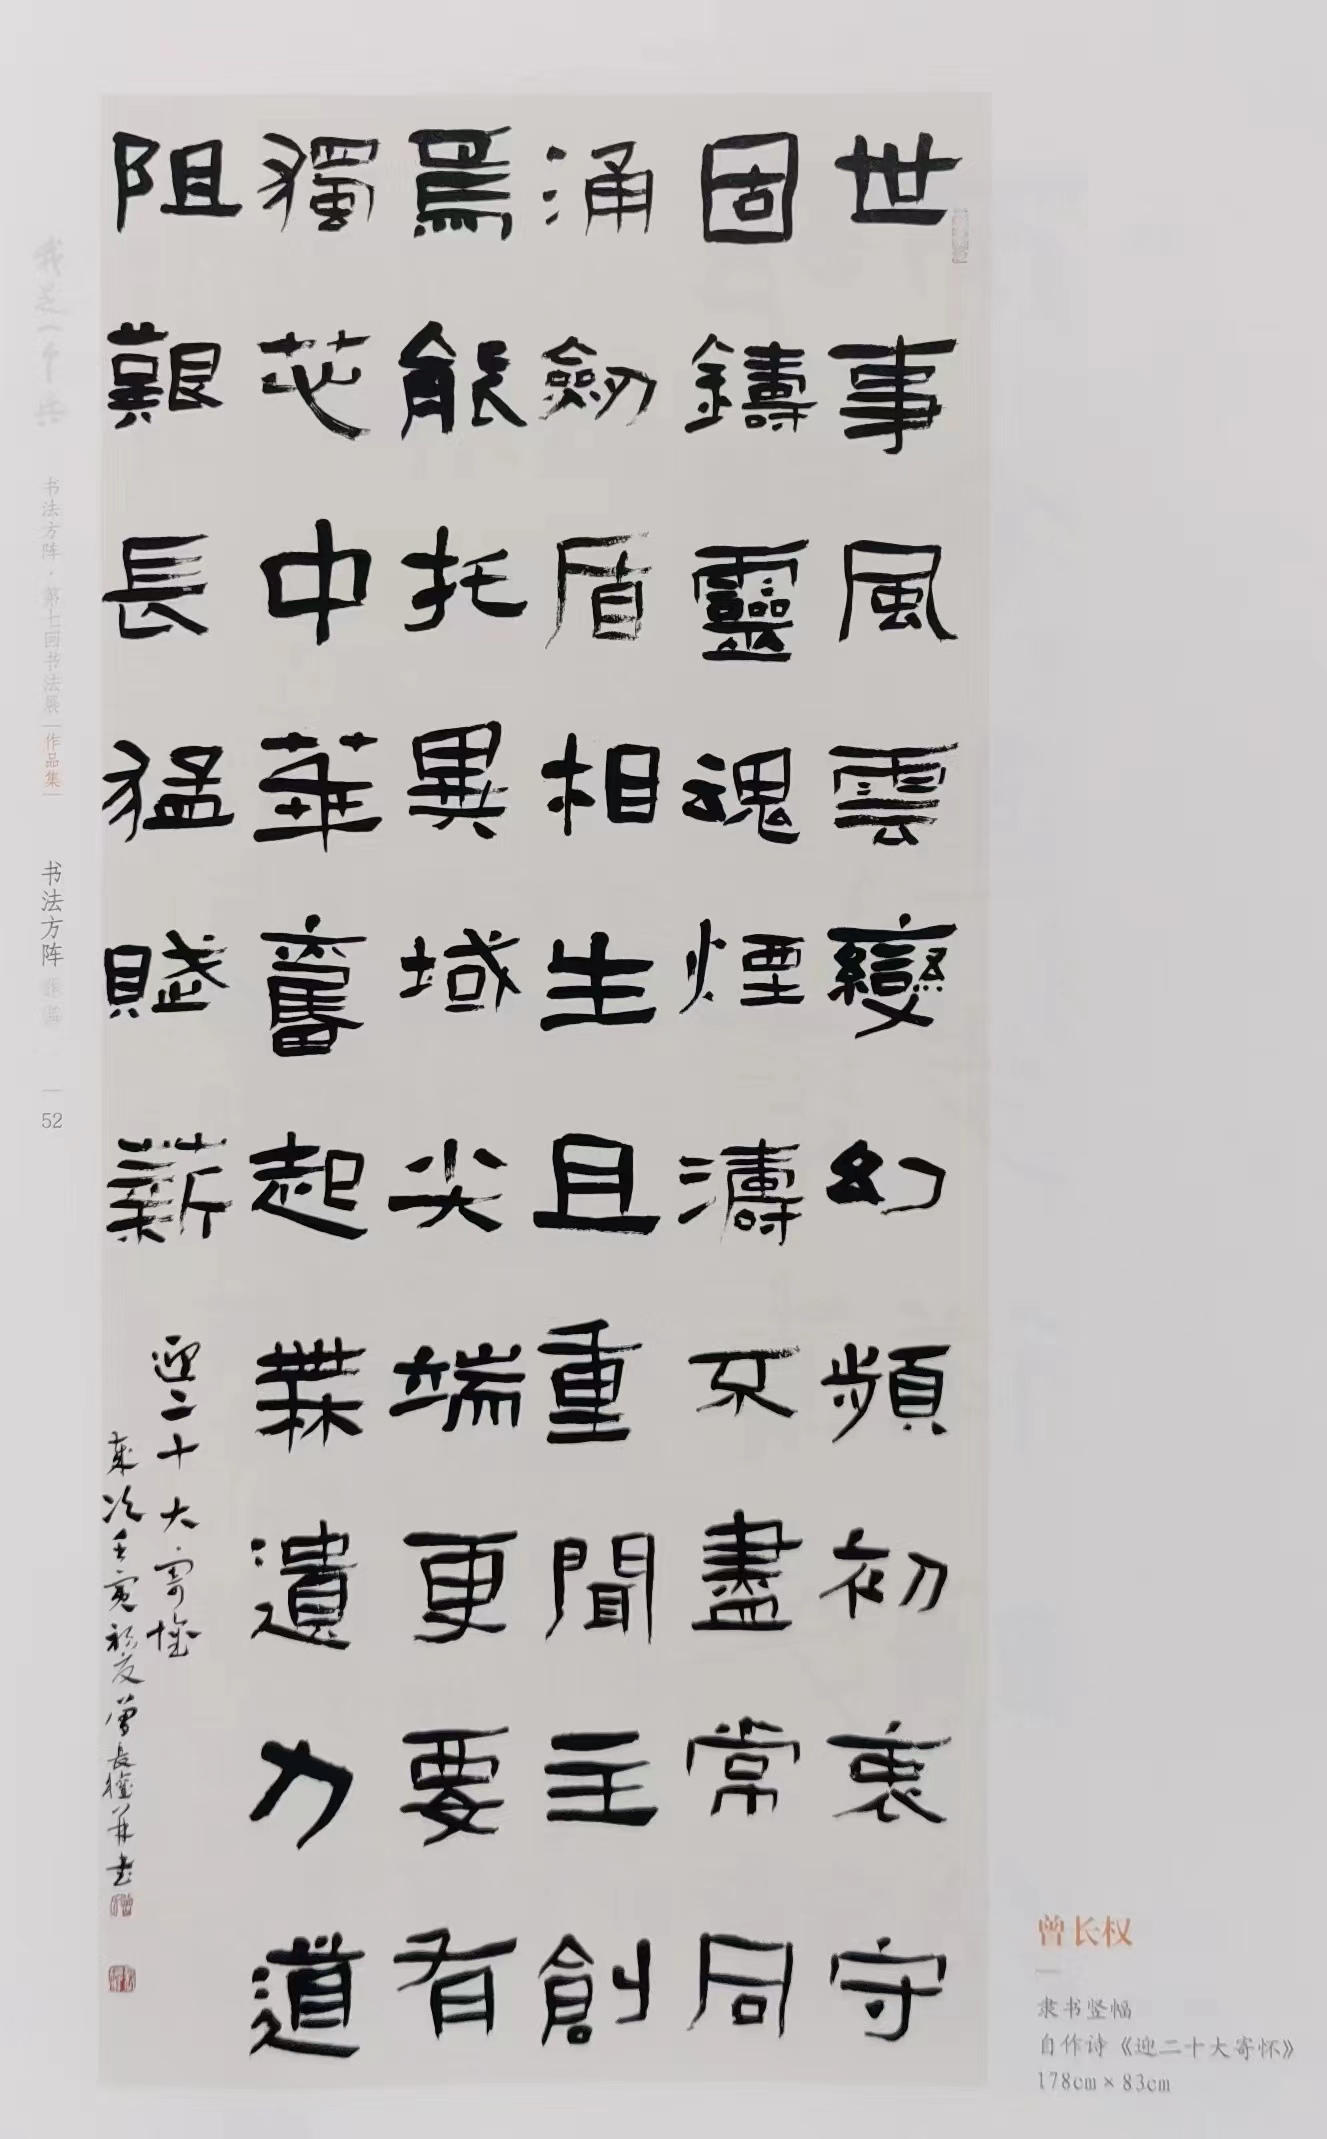 世事風雲變幻頻初衷守
固鑄靈魂煙濤不盡常同
涌劒盾相生且重聞主創
焉能托異域尖端更要有
獨芯中華奮起無遺力道
阻艱長猛賦薪
迎二十大寄懷
歲次壬寅初夏曾長權并書
书法方阵·第七回书法展
作品集
书法方阵
52
曾长权
隶书竖幅
自作诗《迎二十大寄怀》
178cm×83cm